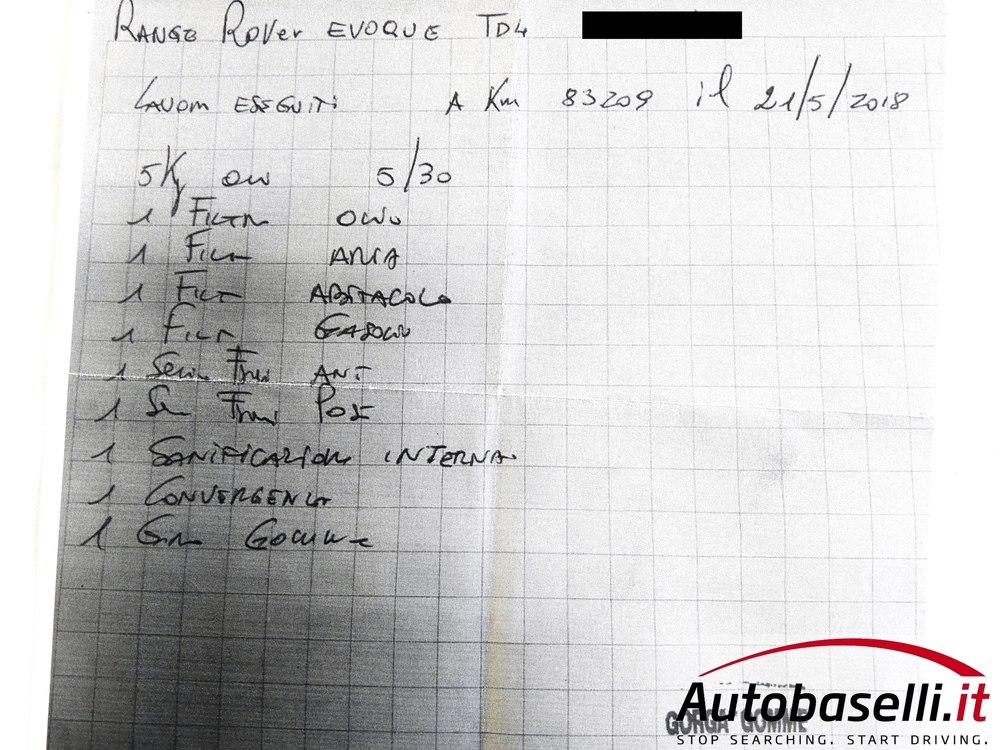 RANGE ROVER EVOQUE TD4
LAVORI ESEGUITI A Km 83209 il 21/5/2018
5Kg OLIO 5/30
1 FILTRO OLIO
1 FILT ARIA
1 FILT ABITACOLO
1 FILT GASOLIO
1 Serie Freni ANT
1 Se Freni POST
1 SANIFICAZIONE INTERNA
1 CONVERGENZA
1 Giro Gomme
GORGA GOMME
Autobaselli.it
STOP SEARCHING. START DRIVING.